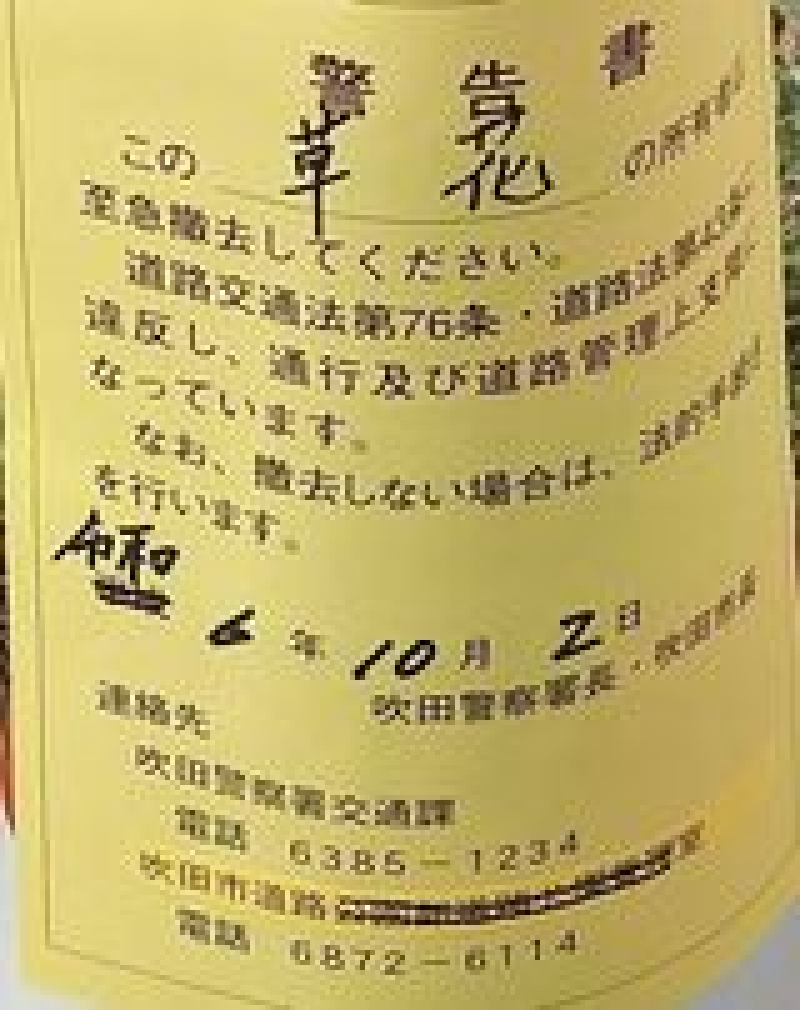 警告書
この 草花 の所有者は
至急撤去してください。
道路交通法第76条・道路法第43条に
違反し、通行及び道路管理上支障に
なっています。
なお、撤去しない場合は、法的手続き
を行います。
令和
6年10月2日
吹田警察署長・吹田市長
連絡先
吹田警察署交通課
電話 6385-1234
吹田市道路
電話 6872-6114